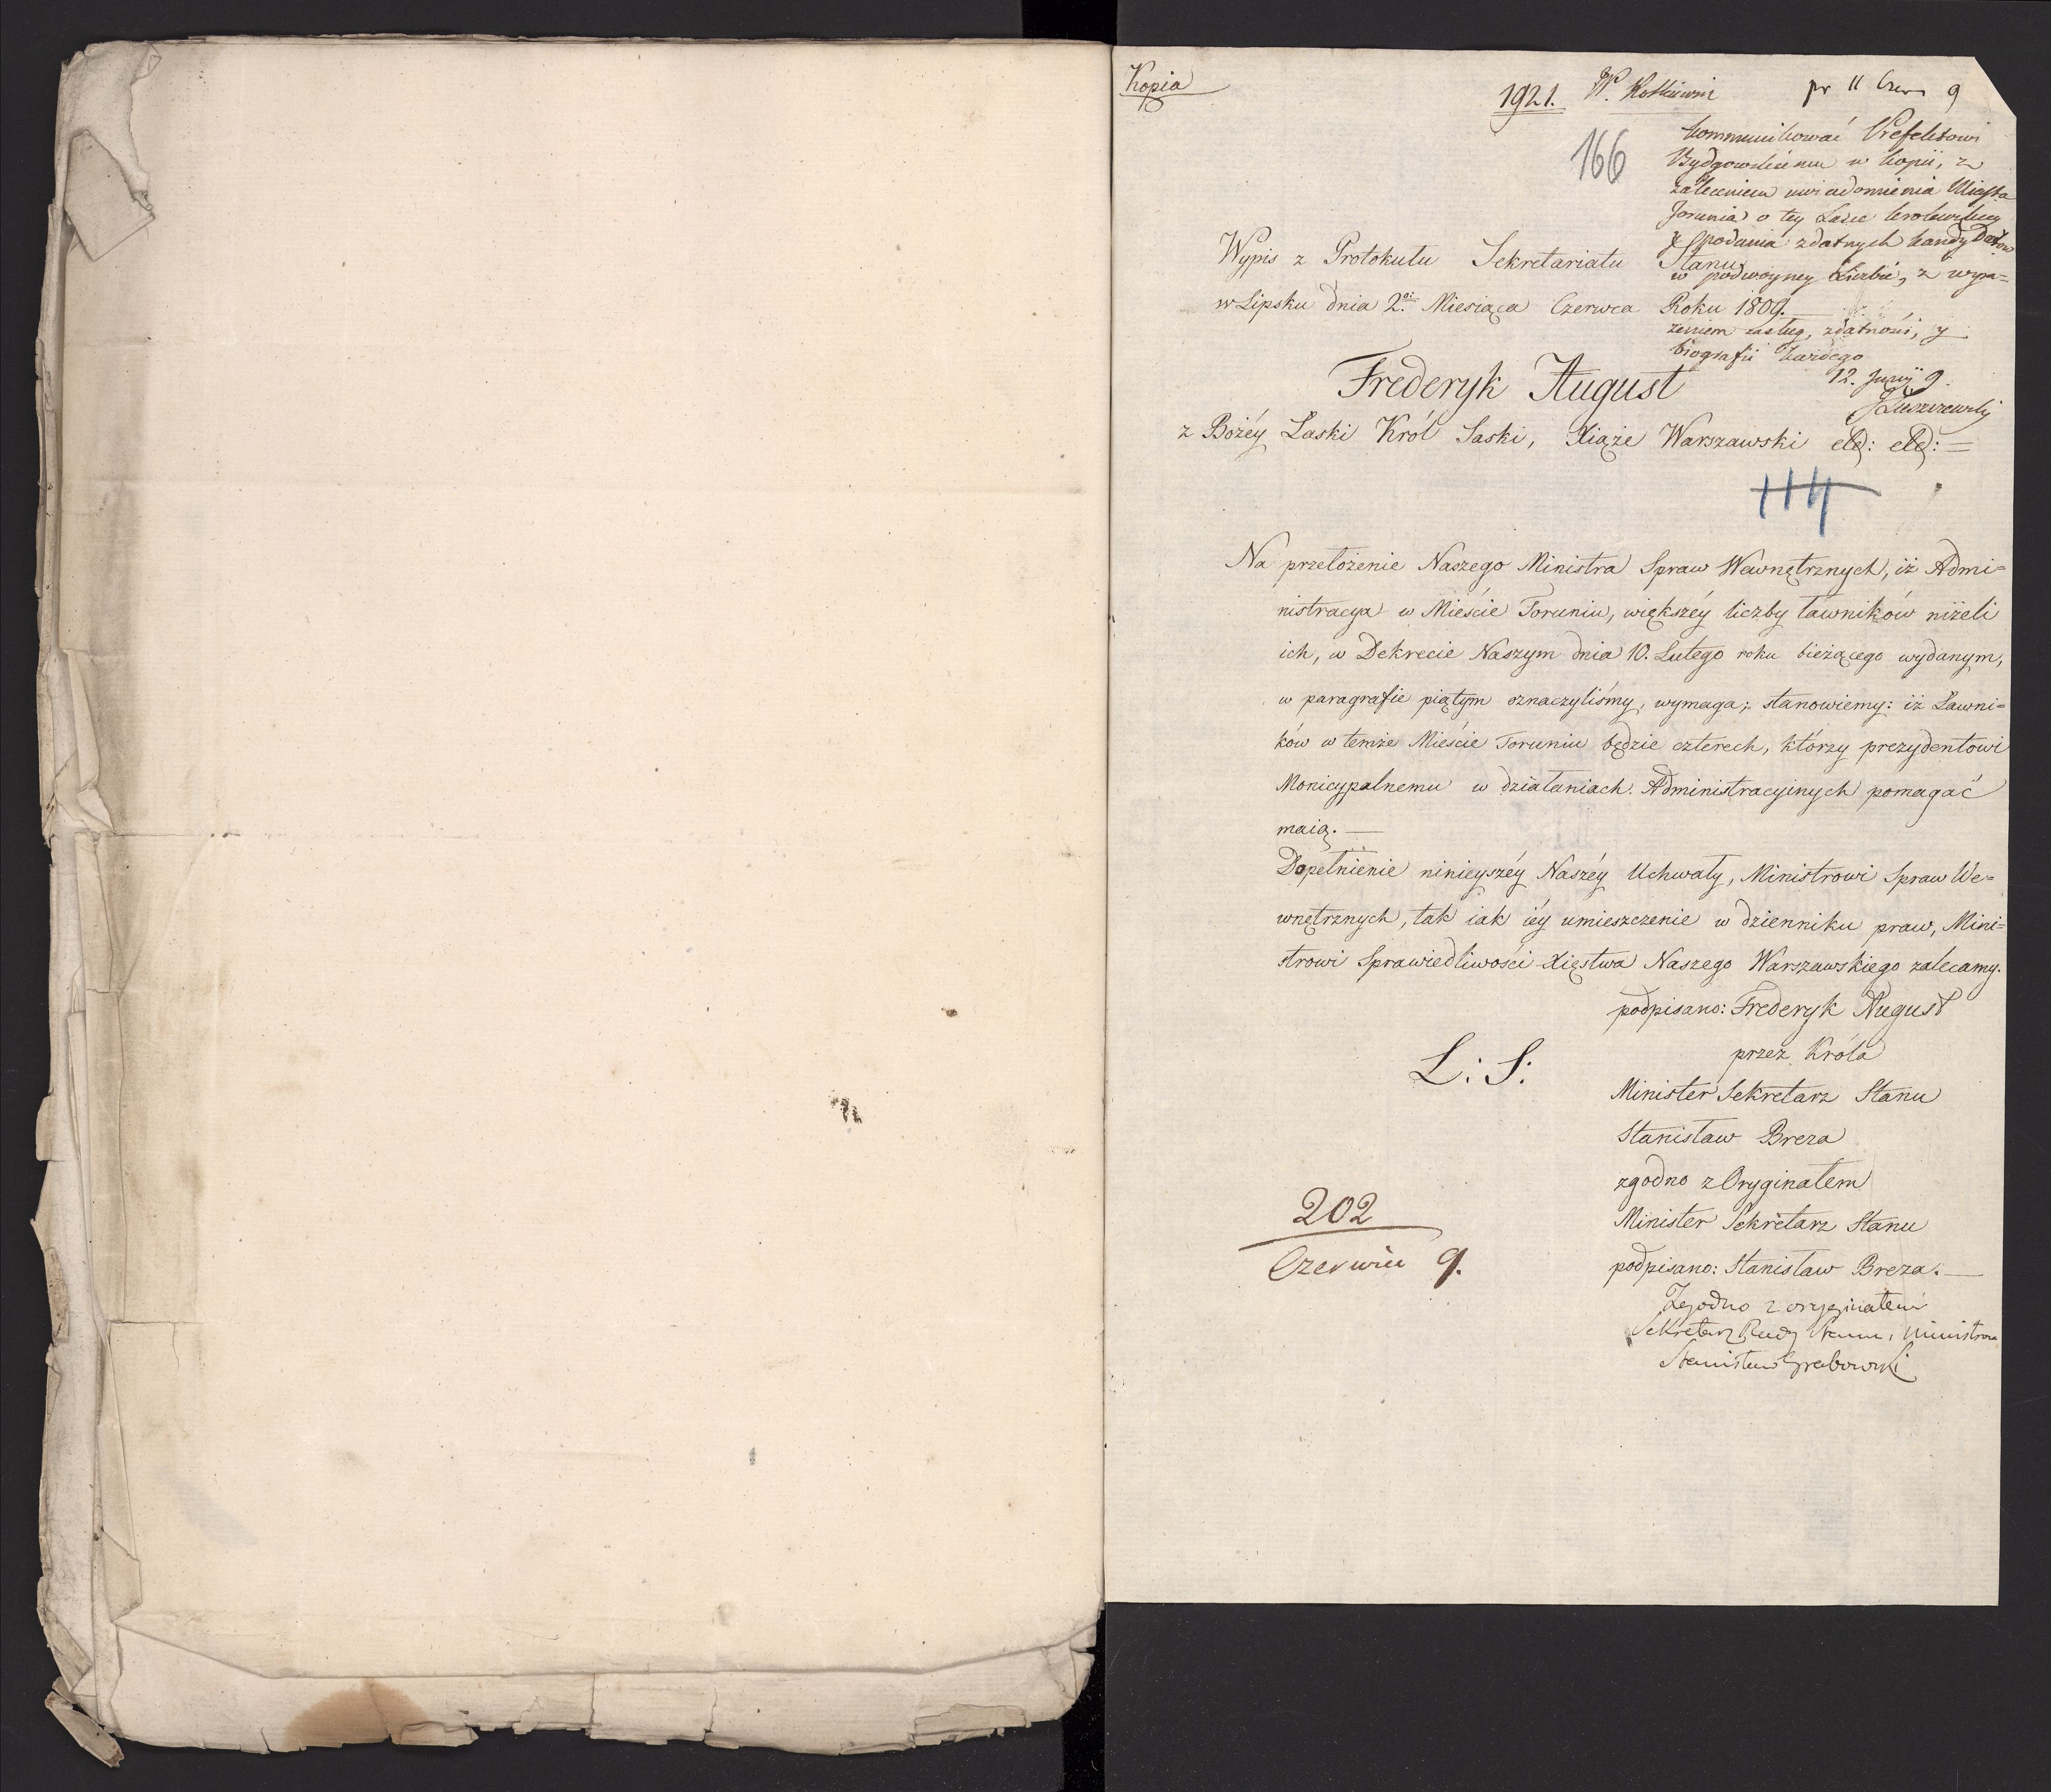 Kopia
1921. W. Kotkiewni pr 11 Czer 9
166
kommunikować Prefektowi
Bydgowskiemu w kopii, z
zaleceniem uwiadomienia Miasta
Torunia o tey Łasce krolewskiey
y podania zdatnych kandydatow
w podwoyney liczbie, z wyra=
zeniem zasług, zdatności, y
biografii każdego
12. Junÿ 9.
JŁuszczewski
Wypis z Protokułu Sekretariatu Stanu
w Lipsku dnia 2.go Miesiąca Czerwca Roku 1809.
Frederyk August
z Bożéy Łaski Król Saski, Xiąże Warszawski etc: etc: =
114
Na przełożenie Naszego Ministra Spraw Wewnętrznych, iż Admi=
nistracya w Mieście Toruniu, większéy liczby ławników niżeli
ich, w Dekrecie Naszym dnia 10. Lutego roku bieżącego wydanym,
w paragrafie piątym oznaczyliśmy, wymaga; stanowiemy: iż Ławni=
ków w temże Mieście Toruniu będzie czterech, którzy prezydentowi
Monicypalnemu w działaniach Administracyinych pomagać
maią. —
Dopełnienie ninieyszéy Naszéy Uchwały, Ministrowi Spraw We=
wnętrznych, tak iak iéy umieszczenie w dzienniku praw, Mini=
strowi Sprawiedliwości Xięstwa Naszego Warszawskiego zalecamy.
podpisano: Frederyk August
przez Króla
L: S:
Minister Sekretarz Stanu
Stanisław Breza
zgodno z Oryginałem
Minister Sekretarz Stanu
podpisano: Stanisław Breza. —
202
Czerwiec 9.
Zgodno z oryginałem
Sekretarz Rady Stanu i Ministrow
Stanisław Grabowski